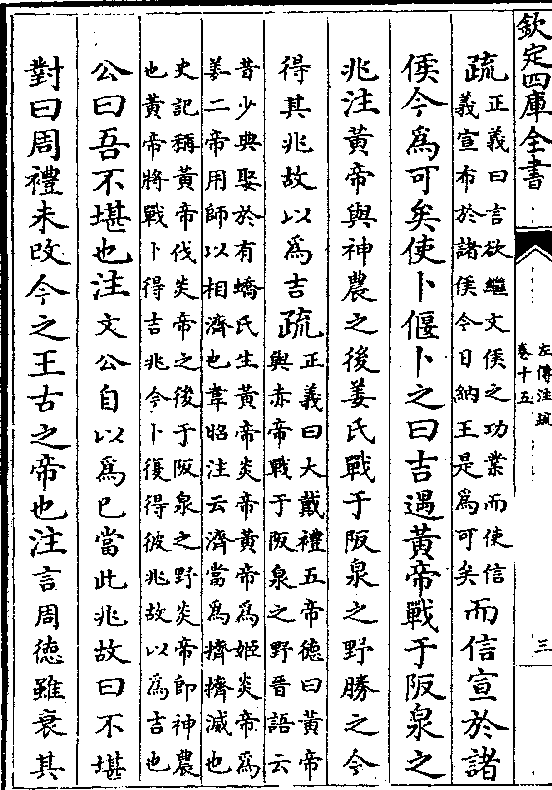 欽定四庫全書
左傳注疏
卷十五
三
疏正義曰言欲繼文侯之功業而使信
義宣布於諸侯今日納王是為可矣而信宣於諸
侯今為可矣使卜偃卜之曰吉遇黃帝戰于阪泉之
兆注黃帝與神農之後姜氏戰于阪泉之野勝之今
得其兆故以為吉疏正義曰大戴禮五帝德曰黃帝
與赤帝戰于阪泉之野晉語云
昔少典娶於有蟜氏生黃帝炎帝黃帝為姬炎帝為
姜二帝用師以相濟也韋昭注云濟當為擠擠滅也
史記稱黃帝伐炎帝之後于阪泉之野炎帝即神農
也黃帝將戰卜得吉兆今卜復得彼兆故以為吉也
公曰吾不堪也注文公自以為己當此兆故曰不堪
對曰周禮未改今之王古之帝也注言周德雖衰其